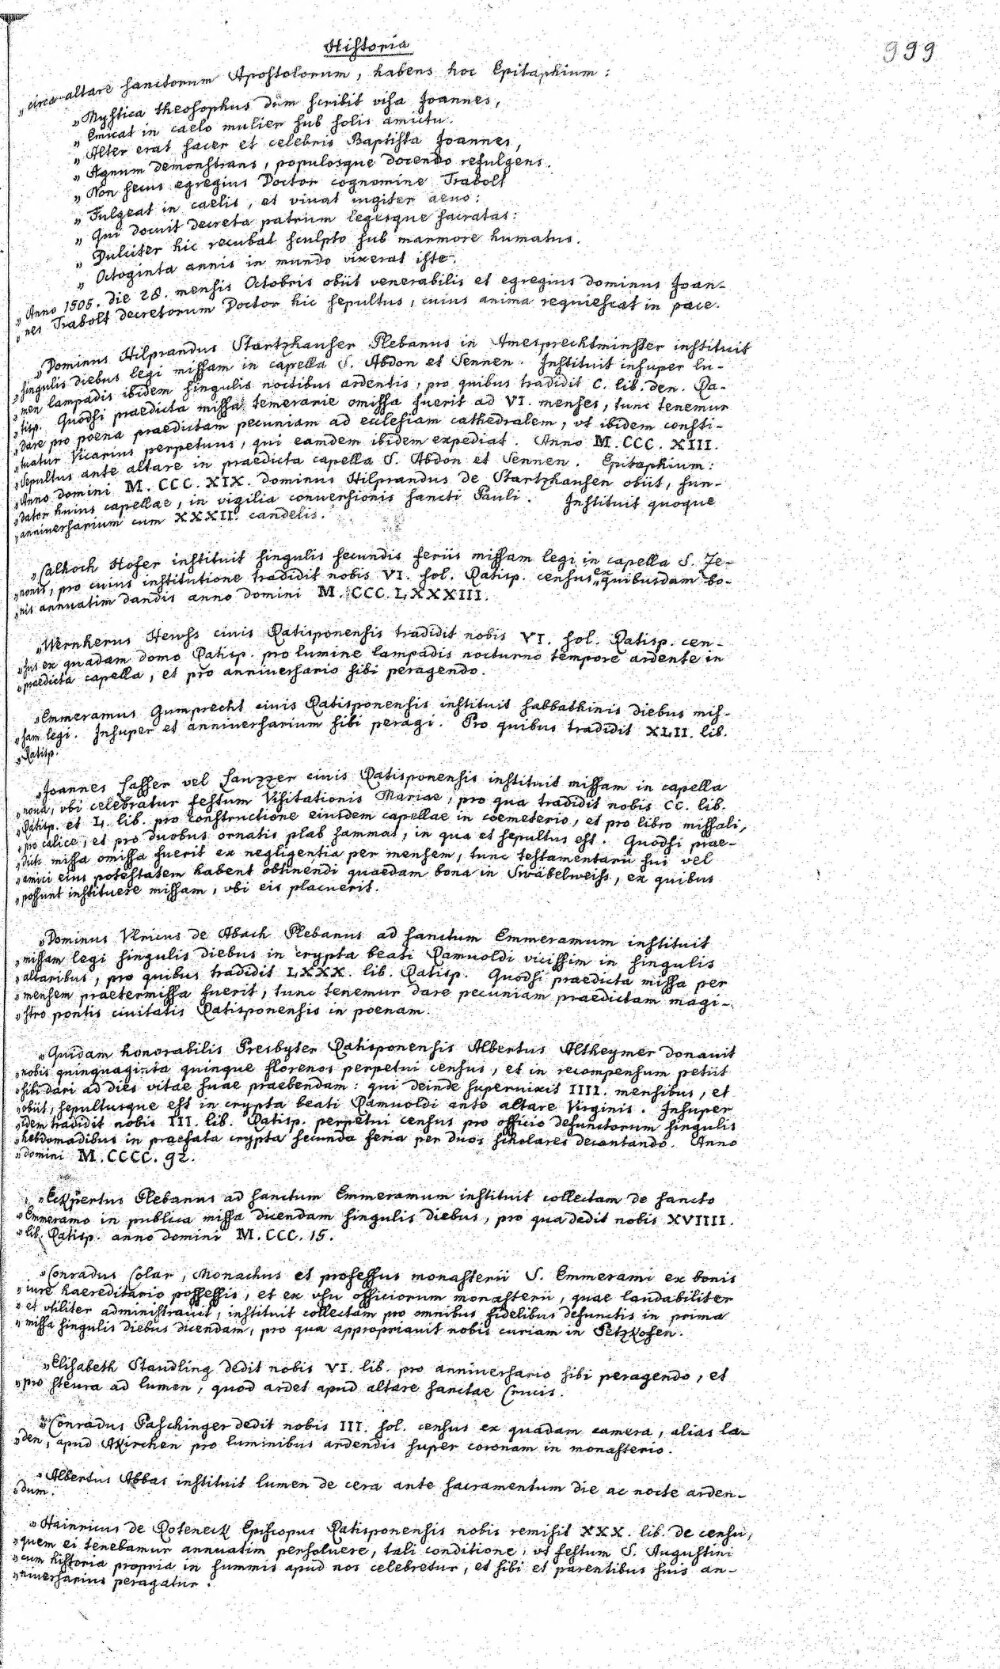 Historia
999
„circa altare sanctorum Apostolorum, habens hoc Epitaphium:
„Mystica theosophus dum scribit visa Joannes,
„Emicat in caelo mulier sub solis amictu.
„Alter erat sacer et celebris Baptista Joannes,
„Agnum demonstrans, populosque docendo refulgens.
„Non secus egregius Doctor cognomine Trabolt
„Fulgeat in caelis, et vivat iugiter aeuo:
„Qui docuit decreta patrum legesque sacratas:
„Dulciter hic recubat sculpto sub marmore humatus.
„Octoginta annis in mundo vixerat iste.
„Anno 1505. die 28. mensis Octobris obiit venerabilis et egregius dominus Joan-
„nes Trabolt decretorum Doctor hic sepultus, cuius anima requiescat in pace.
„Dominus Hilprandus Startzhauser Plebanus in Amesprechtminster instituit
„singulis diebus legi missam in capella S. Abdon et Sennen. Instituit insuper lu-
„men lampadis ibidem singulis noctibus ardentis, pro quibus tradidit C. lib. den. Ra-
„tisp. Quodsi praedicta missa temerarie omissa fuerit ad VI. menses, tunc tenemur
„dare pro poena praedictam pecuniam ad ecclesiam cathedralem, vt ibidem consti-
„tuatur Vicarius perpetuus, qui eamdem ibidem expediat. Anno M. CCC. XIII.
„Sepultus ante altare in praedicta capella S. Abdon et Sennen. Epitaphium:
„Anno domini M. CCC. XIX. dominus Hilprandus de Startzhausen obiit, fun-
„dator huius capellae, in vigilia conuersionis sancti Pauli. Instituit quoque
„anniuersarium cum XXXII. candelis.
„Calhoch Hofer instituit singulis secundis feriis missam legi in capella S. Ze-
„nonis, pro cuius institutione tradidit nobis VI. sol. Ratisp. census ex quibusdam bo-
„nis annuatim dandis anno domini M. CCC. LXXXIII.
„Wernherus Hewss ciuis Ratisponensis tradidit nobis VI. sol. Ratisp. cen-
„sus ex quadam domo Ratisp. pro lumine lampadis nocturno tempore ardente in
„praedicta capella, et pro anniuersario sibi peragendo.
„Emmeramus Gumprecht ciuis Ratisponensis instituit sabbathinis diebus mis-
„sam legi. Insuper et anniuersarium sibi peragi. Pro quibus tradidit XLII. lib.
„Ratisp.
„Joannes Sasser vel Sanzzer ciuis Ratisponensis instituit missam in capella
„noua, vbi celebratur festum Visitationis Mariae, pro qua tradidit nobis CC. lib.
„Ratisp. et L. lib. pro constructione eiusdem capellae in coemeterio, et pro libro missali,
„pro calice, et pro duobus ornatis ad missam, in qua et sepultus est. Quodsi prae-
„dicta missa omissa fuerit ex negligentia per mensem, tunc testamentarii sui vel
„amici eius potestatem habent obtinendi quaedam bona in Swäbelweiss, ex quibus
„possunt instituere missam, vbi eis placuerit.
„Dominus Vlricus de Abach Plebanus ad sanctum Emmeramum instituit
„missam legi singulis diebus in crypta beati Ramuoldi vicissim in singulis
„altaribus, pro quibus tradidit LXXX. lib. Ratisp. Quodsi praedicta missa per
„mensem praetermissa fuerit, tunc tenemur dare pecuniam praedictam magi-
„stro pontis ciuitatis Ratisponensis in poenam.
„Quidam honorabilis Presbyter Ratisponensis Albertus Altheymer donauit
„nobis quinquaginta quinque florenos perpetui census, et in recompensum petiit
„sibi dari ad dies vitae suae praebendam: qui deinde superuixit IIII. mensibus, et
„obiit, sepultusque est in crypta beati Ramuoldi ante altare Virginis. Insuper
„idem tradidit nobis III. lib. Ratisp. perpetui census pro officio defunctorum singulis
„hebdomadibus in praefata crypta secunda feria per duos scholares decantando. Anno
„domini M. CCCC. 92.
„Eckpertus Plebanus ad sanctum Emmeramum instituit collectam de sancto
„Emmeramo in publica missa dicendam singulis diebus, pro qua dedit nobis XVIIII.
„lib. Ratisp. anno domini M. CCC. 15.
„Conradus Colar, Monachus et professus monasterii S. Emmerami ex bonis
„iure haereditario possessis, et ex vsu officiorum monasterii, quae laudabiliter
„et vtiliter administrauit, instituit collectam pro omnibus fidelibus defunctis in prima
„missa singulis diebus dicendam, pro qua appropriauit nobis curiam in Petzkofen.
„Elisabeth Staudling dedit nobis VI. lib. pro anniuersario sibi peragendo, et
„pro steura ad lumen, quod ardet apud altare sanctae Crucis.
„Conradus Paschinger dedit nobis III. sol. census ex quadam camera, alias la-
„den, apud Akirchen pro luminibus ardendis super coronam in monasterio.
„Albertus Abbas instituit lumen de cera ante sacramentum die ac nocte arden-
„dum.
„Hainricus de Roteneck Episcopus Ratisponensis nobis remisit XXX. lib. de censu,
„quem ei tenebamur annuatim persoluere, tali conditione, vt festum S. Augustini
„cum historia propria in summis apud nos celebretur, et sibi et parentibus suis an-
„niuersarius peragatur.